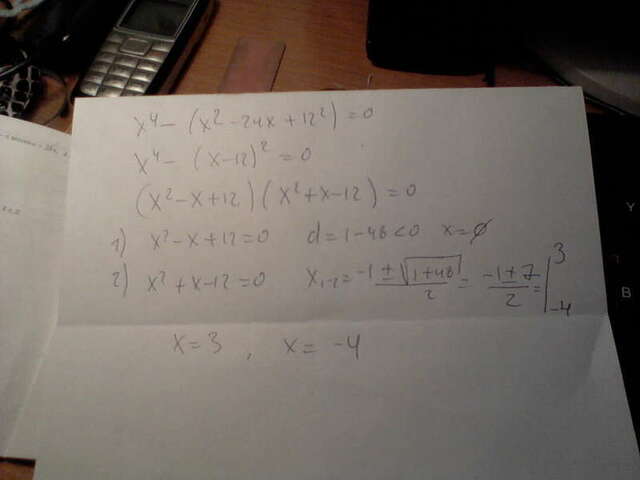 x⁴ − (x² − 24x + 12²) = 0
x⁴ − (x − 12)² = 0
(x² − x + 12)(x² + x − 12) = 0
1) x² − x + 12 = 0 d = 1 − 48 < 0 x = ∅
2) x² + x − 12 = 0 x₁₋₂ = −1 ± √(1+48) / 2 = −1 ± 7 / 2 = | 3 −4
x = 3 , x = −4
Y
B